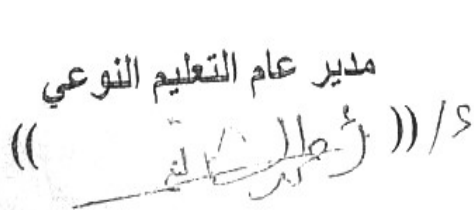 مدير عام التعليم النوعي
د/ (( ))